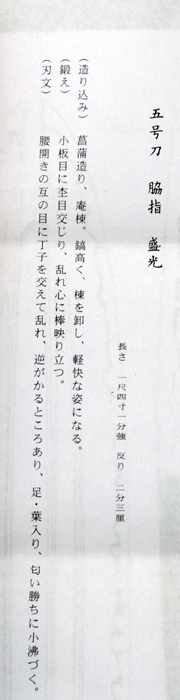 五号刀　脇指　盛光
長さ　一尺四寸一分強　反り　二分三厘
（造り込み）　菖蒲造り、庵棟。鎬高く、棟を卸し、軽快な姿になる。
（鍛え）　小板目に杢目交じり、乱れ心に棒映り立つ。
（刃文）　腰開きの互の目に丁子を交えて乱れ、逆がかるところあり、足・葉入り、匂い勝ちに小沸づく。